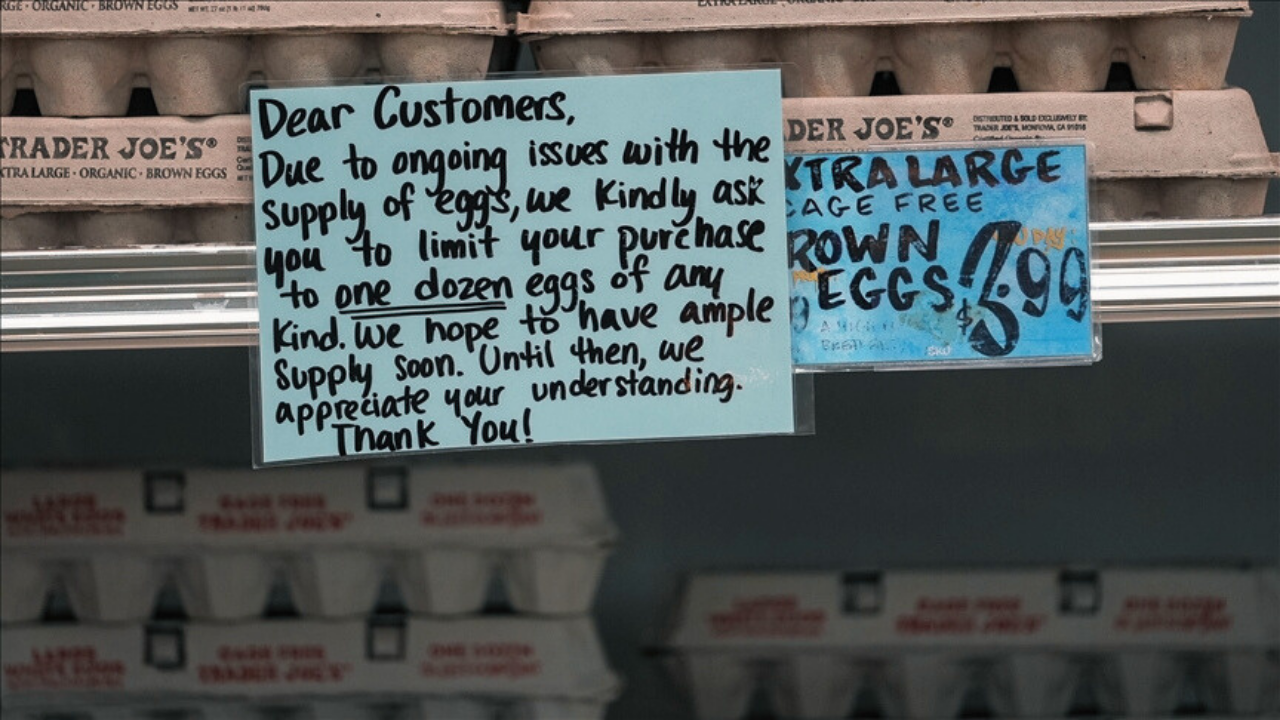 RGE · ORGANIC · BROWN EGGS
TRADER JOE'S®
XTRA LARGE · ORGANIC · BROWN EGGS
Dear Customers,
Due to ongoing issues with the
supply of eggs, we kindly ask
you to limit your purchase
to one dozen eggs of any
kind. We hope to have ample
supply soon. Until then, we
appreciate your understanding.
Thank You!
DER JOE'S®
DISTRIBUTED & SOLD EXCLUSIVELY BY:
TRADER JOE'S, MONROVIA, CA 91016
XTRA LARGE
CAGE FREE
ROWN
EGGS
$3.99
SKU
LARGE
CAGE FREE
TRADER JOE'S
ONE DOZEN
CAGE FREE
TRADER JOE'S
ONE DOZEN